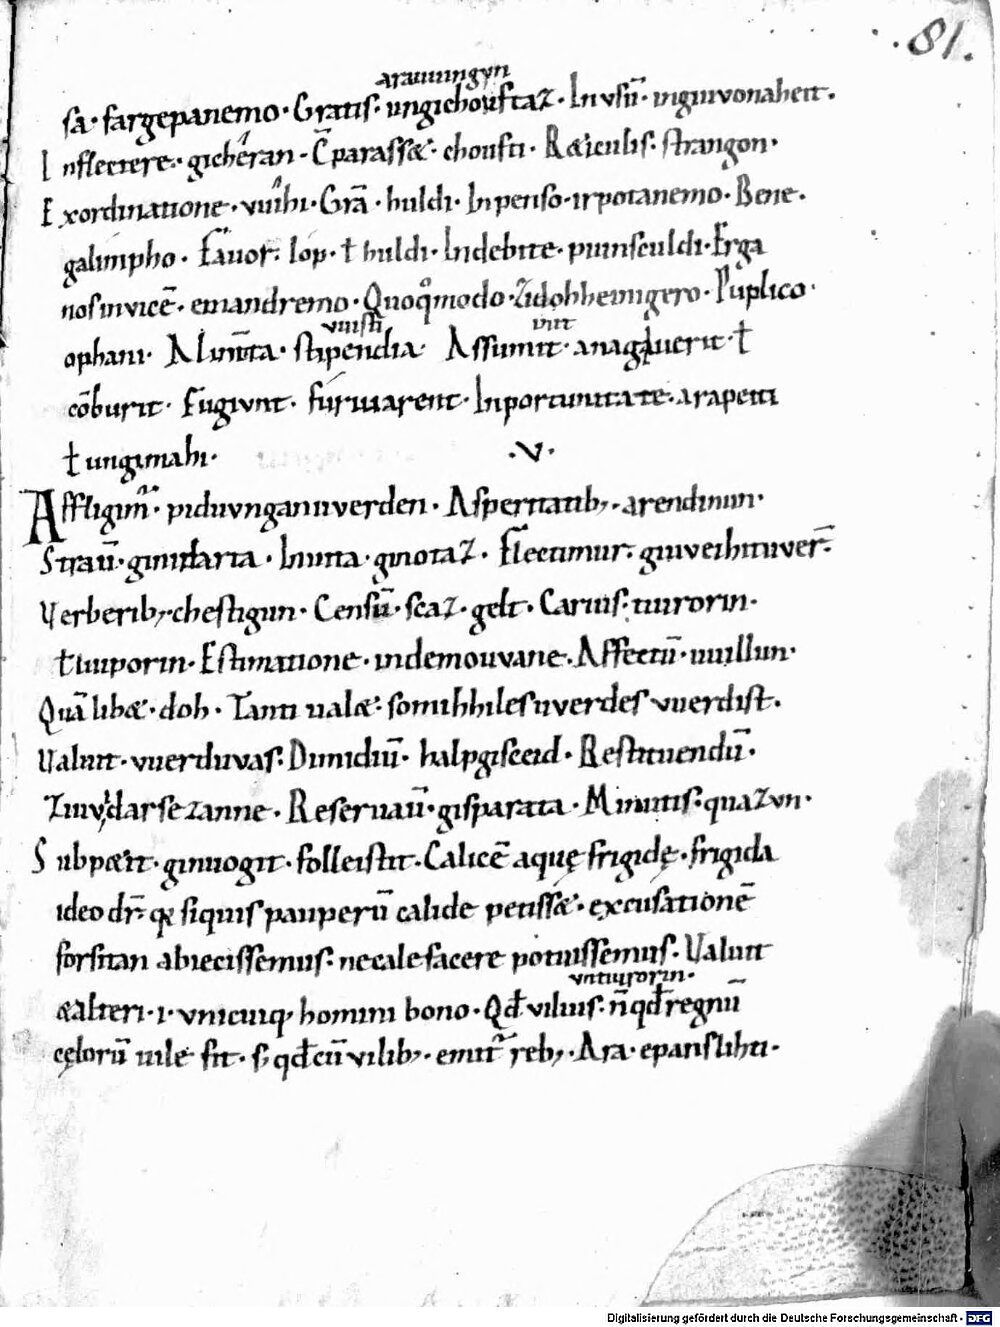 81.
arauuingun
sa· fargepanemo· Gratis· ungichouftaz· Inusū· inginuonaheit·
Inflectere· gicheran· C̄parassæ· choufti· Ræiculis· strangon·
Exordinatione· vuihi· Grā· huldi· Inpenso· irpotanemo· Bene·
galimpho· Fauor· lop· ł huldi· Indebite· puinsculdi· Erga
nos inuicē· emandremo· Quoq̊modo· zidohheinigero· Puplico·
vuisti vnt
ophani· Alimta· stipendia· Assumit· anag&uerit· ł
cōburit· Fugiunt· furiuarent· Inportunitate· arapeiti
ł ungimahi· ·V·
Affligim̄· piduungan uuerden· Aspernatib;· arendinun·
Strauī· Inuita· ginotaz· Flectimur· giuueihituuer̄·
Verberib; chestigun· Censū· scaz· gelt· Carius· tiurorin·
ł tiuporin· Estimatione· indemouuane· Affectū· uuillun·
Quālibæ· doh· Tanti ualæ· somihhiles uuerdes vuerdist·
Valuit· vuerduuas· Dimidiū· halpgisceid· Restituendū·
Ziuu&darsezanne· Reseruauī· gisparata· Minutis· quazun·
Subpæit· ginuogit· folleistit· Calicē aquę frigidę· frigida
ideo dr̄· q̨ siquis pauperū calide petissæ· excusationē
forsitan abiecissemus· ne calefacere potuissemus· Valuit
vntiurorin·
& alteri· i· vnicuiq; homini bono· Qđ vilius· n̄ qđ regnū
cęlorū uile sit· s; qđ cū vilib;· emit̄ reb;· Ara· epanslihti·
Digitalisierung gefördert durch die Deutsche Forschungsgemeinschaft - DFG